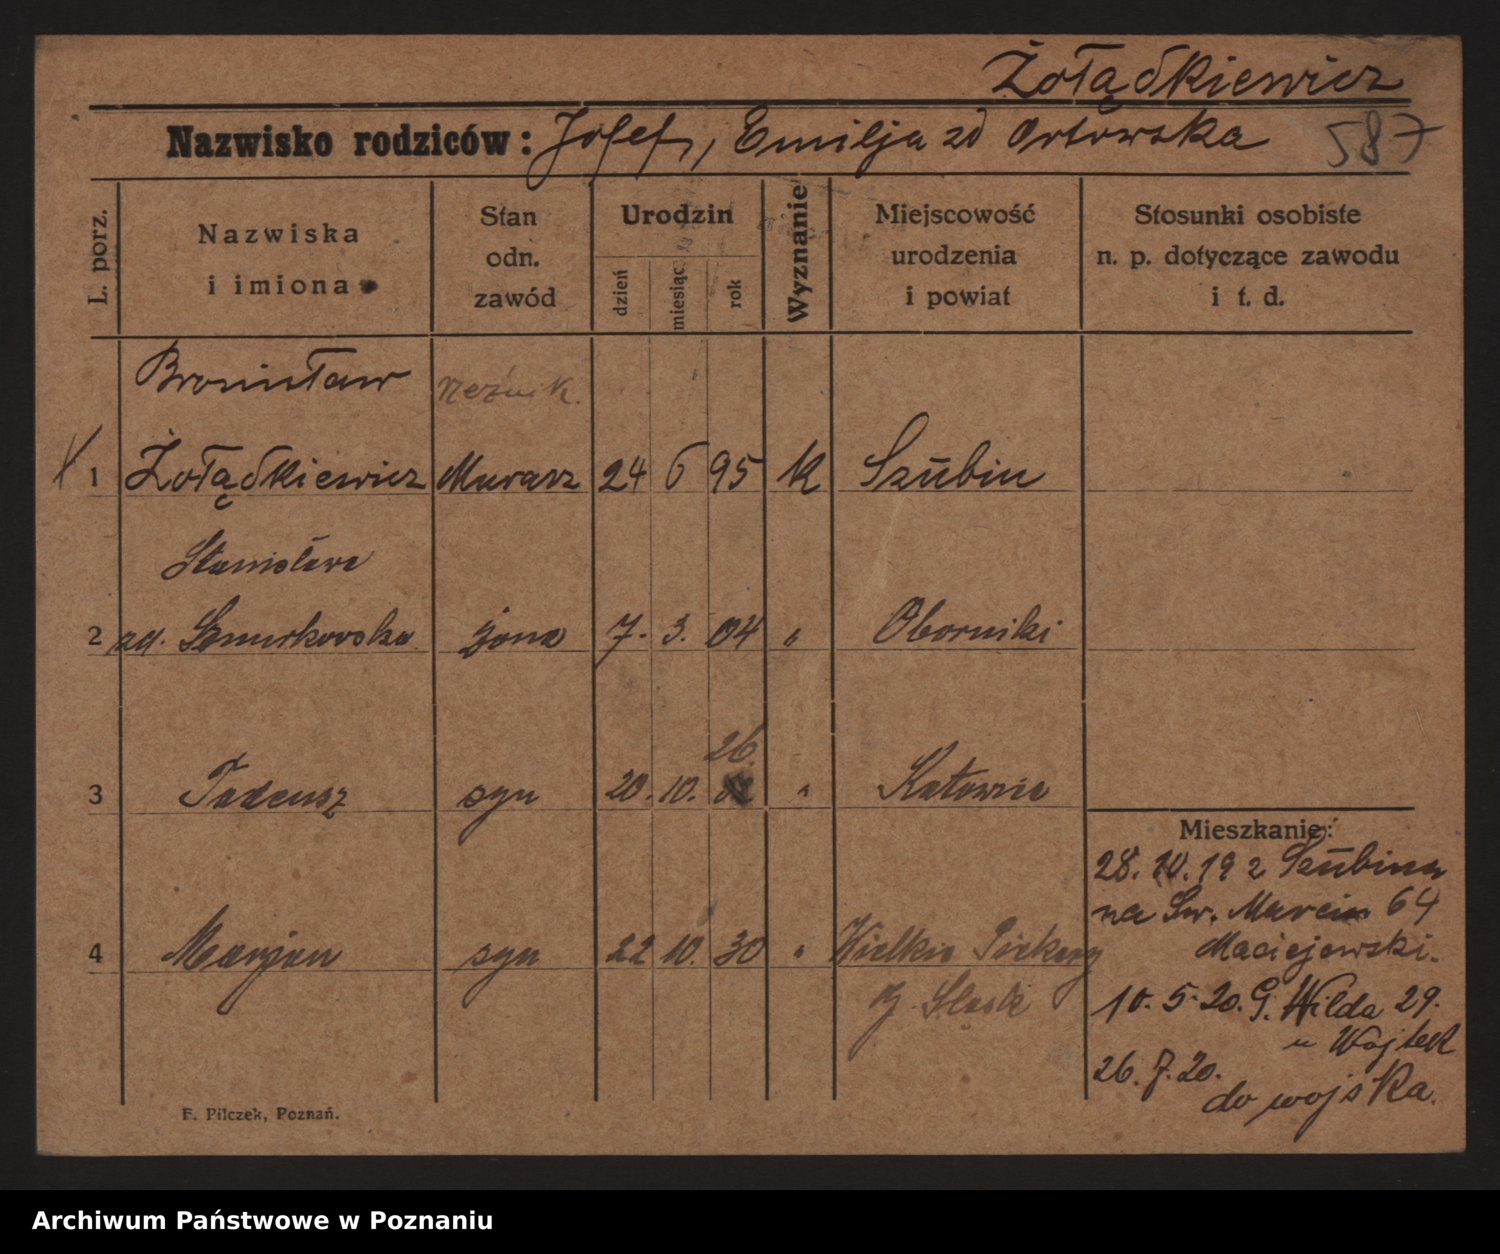 Żołądkiewicz
Nazwisko rodziców: Josef, Emilja zd Orłowska 587
L. porz.
Nazwiska
i imiona
Stan
odn.
zawód
Urodzin
dzień
miesiąc
rok
Wyznanie
Miejscowość
urodzenia
i powiat
Stosunki osobiste
n. p. dotyczące zawodu
i t. d.
Bronisław rzeźnik.
1 Żołądkiewicz Murarz 24 6 95 K Szubin
Stanisława
2 zd. żona 7. 3. 04 " Oborniki
26.
3 Tadeusz syn 20. 10. " Katowice
4 Marjan syn 22 10. 30 " Wielkie Piekary
G. Śląsk
Mieszkanie:
28. 10. 19 z Szubina
na Św. Marcin 64
Maciejewski.
10. 5. 20. G. Wilda 29.
u Wojtek
26. 7. 20.
do wojska.
F. Pilczek, Poznań.
Archiwum Państwowe w Poznaniu